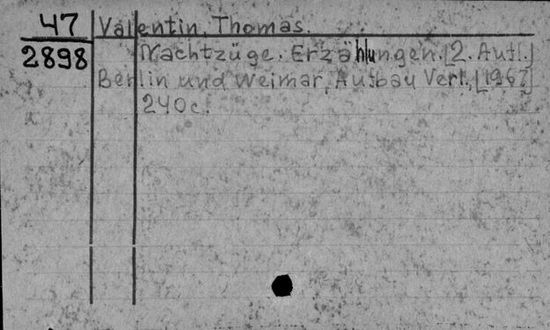 47 Valentin, Thomas.
2898 Nachtzüge. Erzählungen. [2. Aufl.]
Berlin und Weimar, Aufbau Verl., [1967]
240c.